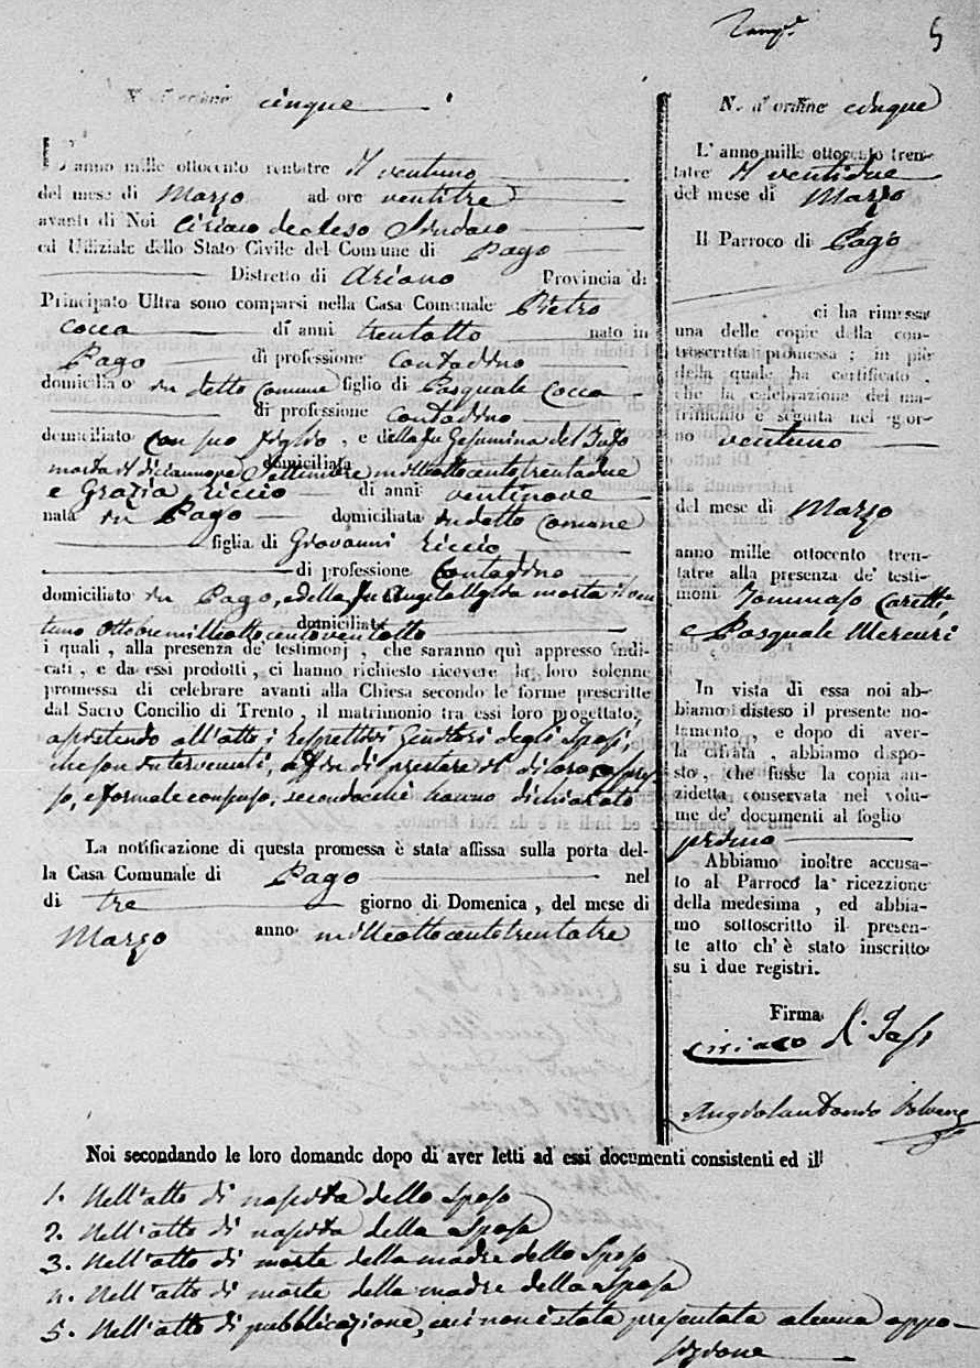 5
N. d'ordine cinque
L'anno mille ottocento trentatre il ventuno
del mese di Marzo ad ore ventitre
avanti di Noi Ciriaco de Sindaco
ed Uffiziale dello Stato Civile del Comune di Pago
Distretto di Ariano Provincia di
Principato Ultra sono comparsi nella Casa Comunale Pietro
Cocca di anni trentotto nato in
Pago di professione Contadino
domiciliato in detto Comune figlio di Pasquale Cocca
di professione Contadino
domiciliato con suo figlio, e della fu Gesumina del
domiciliata
morta il diciannove Settembre milleottocentotrentadue
e Grazia Riccio di anni ventinove
nata in Pago domiciliata in detto Comune
figlia di Giovanni Riccio
di professione Contadino
domiciliato in Pago, e della fu Angela morta il ven
domiciliata
tuno Ottobre milleottocentoventotto
i quali, alla presenza de' testimonj, che saranno quì appresso indi-
cati, e da essi prodotti, ci hanno richiesto ricevere la loro solenne
promessa di celebrare avanti alla Chiesa secondo le forme prescritte
dal Sacro Concilio di Trento, il matrimonio tra essi loro progettato,
assistendo all'atto i rispettivi Genitori degli Sposi,
che son intervenuti, affin di prestare il di loro espres
so, e formale consenso, secondocchè hanno dichiarato
La notificazione di questa promessa è stata affissa sulla porta del-
la Casa Comunale di Pago nel
dì tre giorno di Domenica, del mese di
Marzo anno milleottocentotrentatre
N. d'ordine cinque
L'anno mille ottocento tren-
tatre il ventidue
del mese di Marzo
Il Parroco di Pago
ci ha rimessa
una delle copie della con-
troscritta promessa; in piè
della quale ha certificato,
che la celebrazione del ma-
trimonio è seguita nel gior-
no ventuno
del mese di Marzo
anno mille ottocento tren-
tatre alla presenza de' testi-
moni Tommaso
e Pasquale Mercuri
In vista di essa noi ab-
biamo disteso il presente no-
tamento, e dopo di aver-
la cifrata, abbiamo dispo-
sto, che fusse la copia an-
zidetta conservata nel volu-
me de' documenti al foglio
primo
Abbiamo inoltre accusa-
to al Parroco la ricezzione
della medesima, ed abbia-
mo sottoscritto il presen-
te atto ch'è stato inscritto
su i due registri.
Firma
Ciriaco
Noi secondando le loro domande dopo di aver letti ad essi documenti consistenti ed il
1. Nell'atto di nascita dello sposo
2. Nell'atto di nascita della sposa
3. Nell'atto di morte della madre dello Sposo
4. Nell'atto di morte della madre della sposa
5. Nell'atto di pubblicazione, cui non è stata presentata alcuna oppo-
sizione